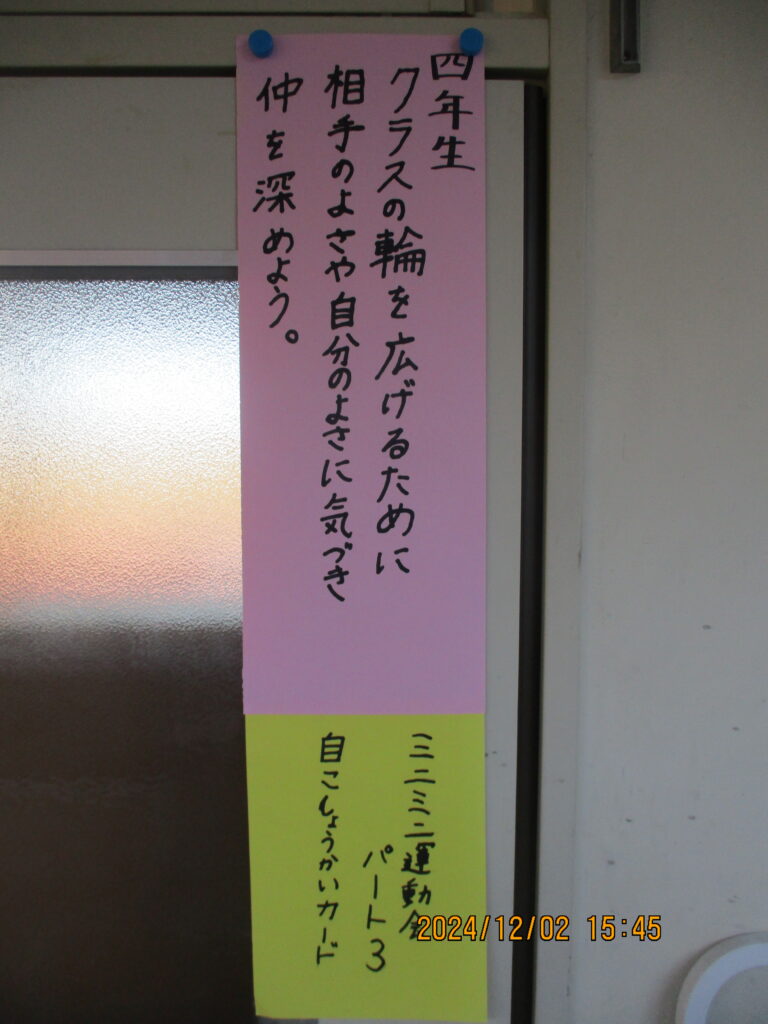 四年生
クラスの輪を広げるために
相手のよさや自分のよさに気づき
仲を深めよう。
ミニミニ運動会
パート3
自こしょうかいカード
2024/12/02 15:45